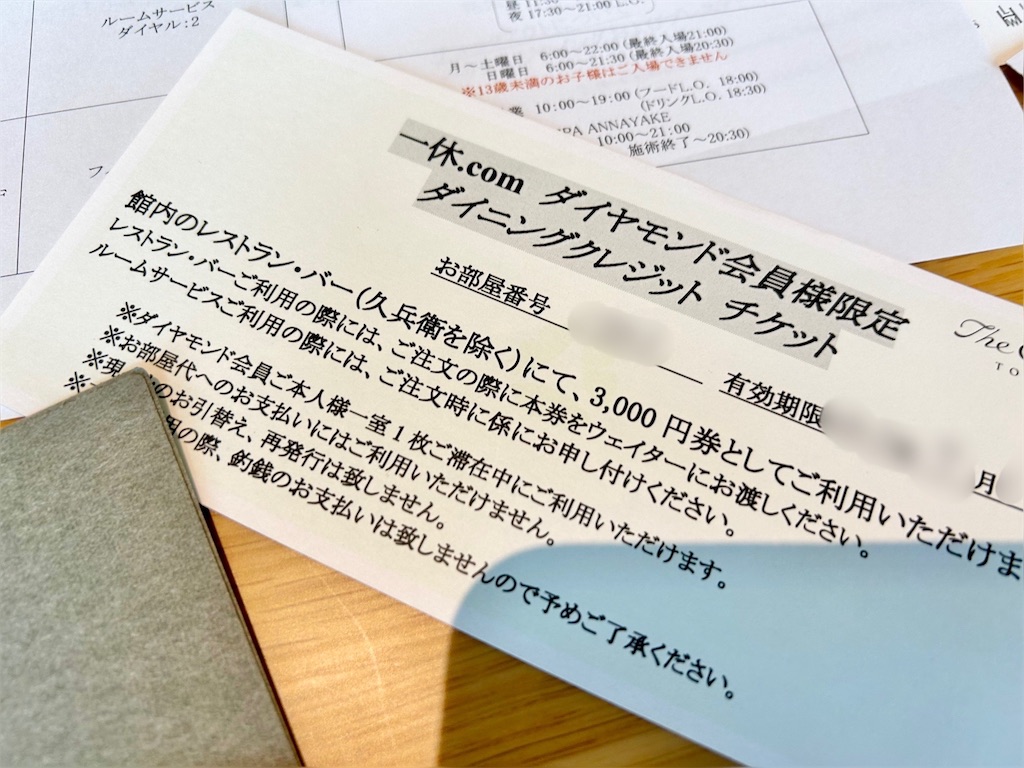 ルームサービス
ダイヤル:2
昼 11:30
夜 17:30〜21:00 L.O.
月〜土曜日 6:00〜22:00 (最終入場21:00)
日曜日 6:00〜21:30 (最終入場20:30)
※13歳未満のお子様はご入場できません
業 10:00〜19:00 (フードL.O. 18:00)
(ドリングL.O. 18:30)
PA ANNAYAKE
10:00〜21:00
施術終了〜20:30)
フ
一休.com ダイヤモンド会員様限定
ダイニングクレジット チケット
The
TO
お部屋番号
有効期限
月
館内のレストラン・バー(久兵衛を除く)にて、3,000 円券としてご利用いただけま
レストラン・バーご利用の際には、ご注文の際に本券をウェイターにお渡しください。
ルームサービスご利用の際には、ご注文時に係にお申し付けください。
※ダイヤモンド会員ご本人様一室1枚ご滞在中にご利用いただけます。
※お部屋代へのお支払いにはご利用いただけません。
※現 のお引替え、再発行は致しません。
※ 用の際、釣銭のお支払いは致しませんので予めご了承ください。